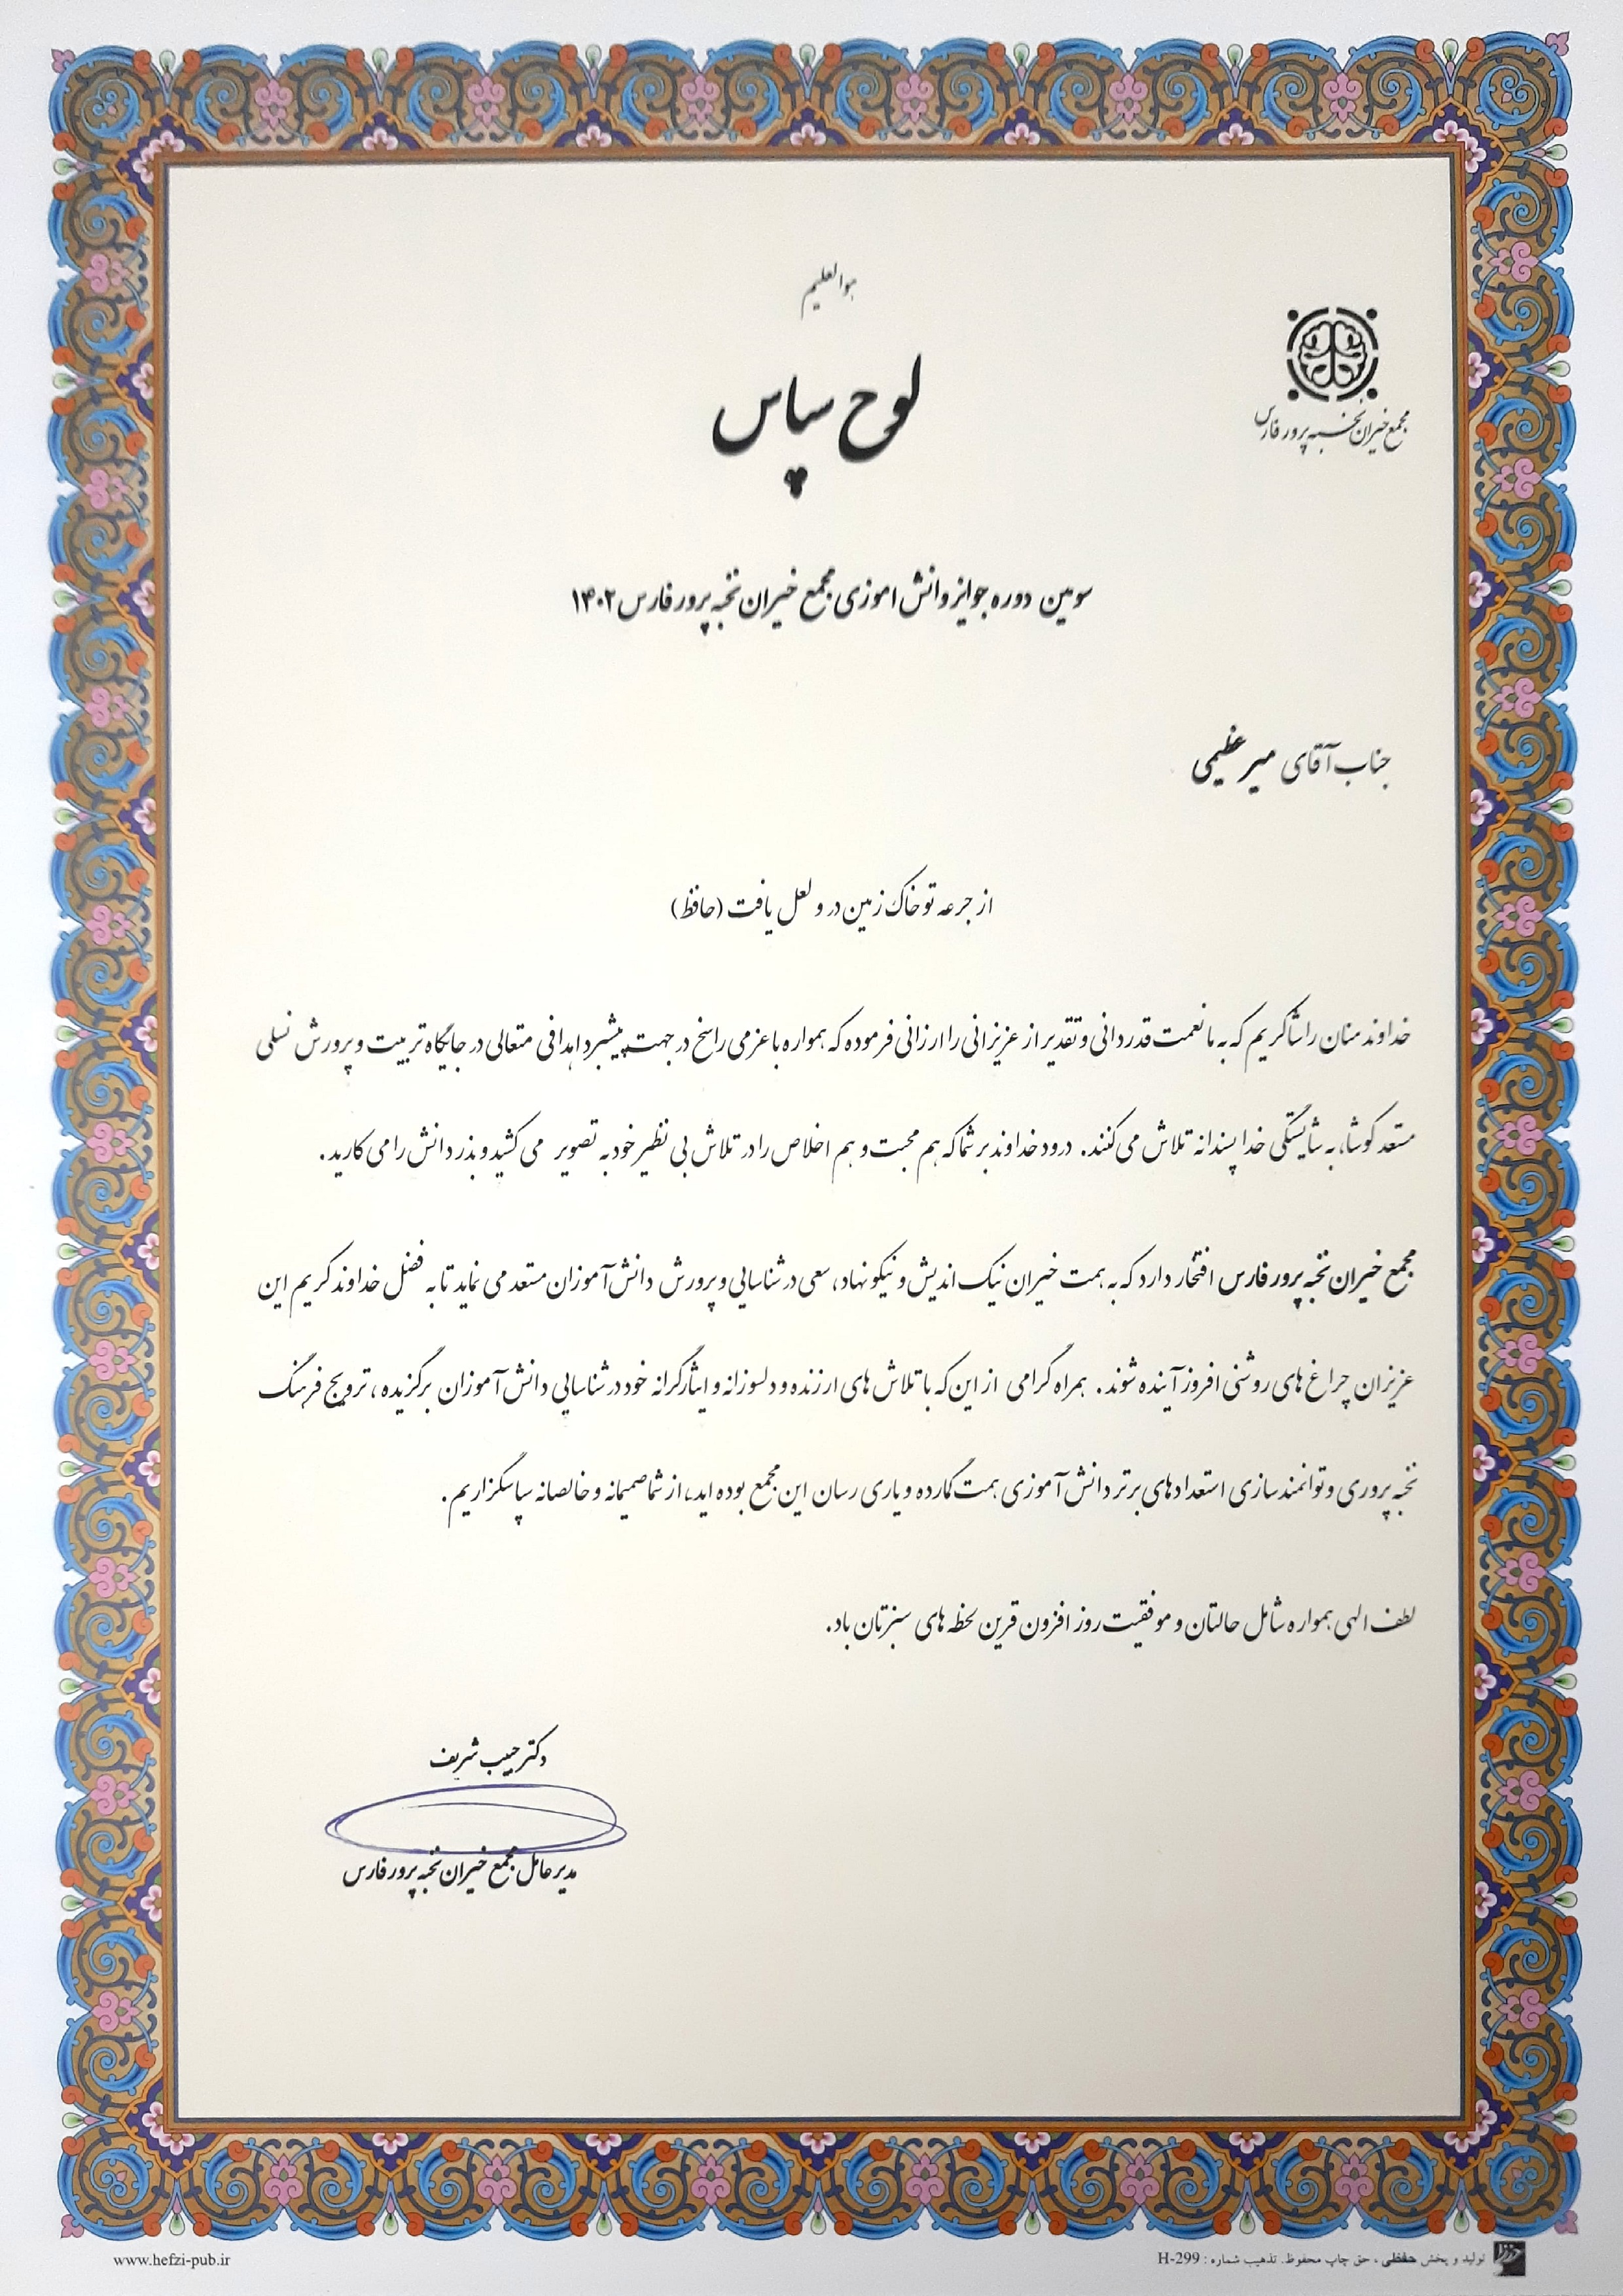 هوالعلیم
مجمع خیران نخبه پرور فارس
لوح سپاس
سومین دوره جوایز دانش اموزی مجمع خیران نخبه پرور فارس ۱۴۰۲
جناب آقای میر عظیمی
از جرعه تو خاک زمین در و لعل یافت (حافظ)
خداوند منان را شاکریم که به ما نعمت قدردانی و تقدیر از عزیزانی را ارزانی فرموده که همواره با عزمی راسخ در جهت پیشبرد اهدافی متعالی در جایگاه تربیت و پرورش نسلی
مستعد کوشا، به شایستگی خدا پسندانه تلاش می کنند. درود خداوند بر شما که هم محبت و هم اخلاص را در تلاش بی نظیر خود به تصویر می کشید و بذر دانش را می کارید.
مجمع خیران نخبه پرور فارس افتخار دارد که به همت خیران نیک اندیش و نیکو نهاد، سعی در شناسایی و پرورش دانش آموزان مستعد می نماید تا به فضل خداوند کریم این
عزیزان چراغ های روشنی افروز آینده شوند. همراه گرامی از این که با تلاش های ارزنده و دلسوزانه و ایثارگرانه خود در شناسایی دانش آموزان برگزیده، ترویج فرهنگ
نخبه پروری و توانمندسازی استعدادهای برتر دانش آموزی همت گمارده و یاری رسان این مجمع بوده اید، از شما صمیمانه و خالصانه سپاسگزاریم.
لطف الهی همواره شامل حالتان و موفقیت روز افزون قرین لحظه های سبزتان باد.
دکتر حبیب شریف
مدیر عامل مجمع خیران نخبه پرور فارس
تولید و پخش حفظی ، حق چاپ محفوظ. تذهیب شماره : H-299
www.hefzi-pub.ir